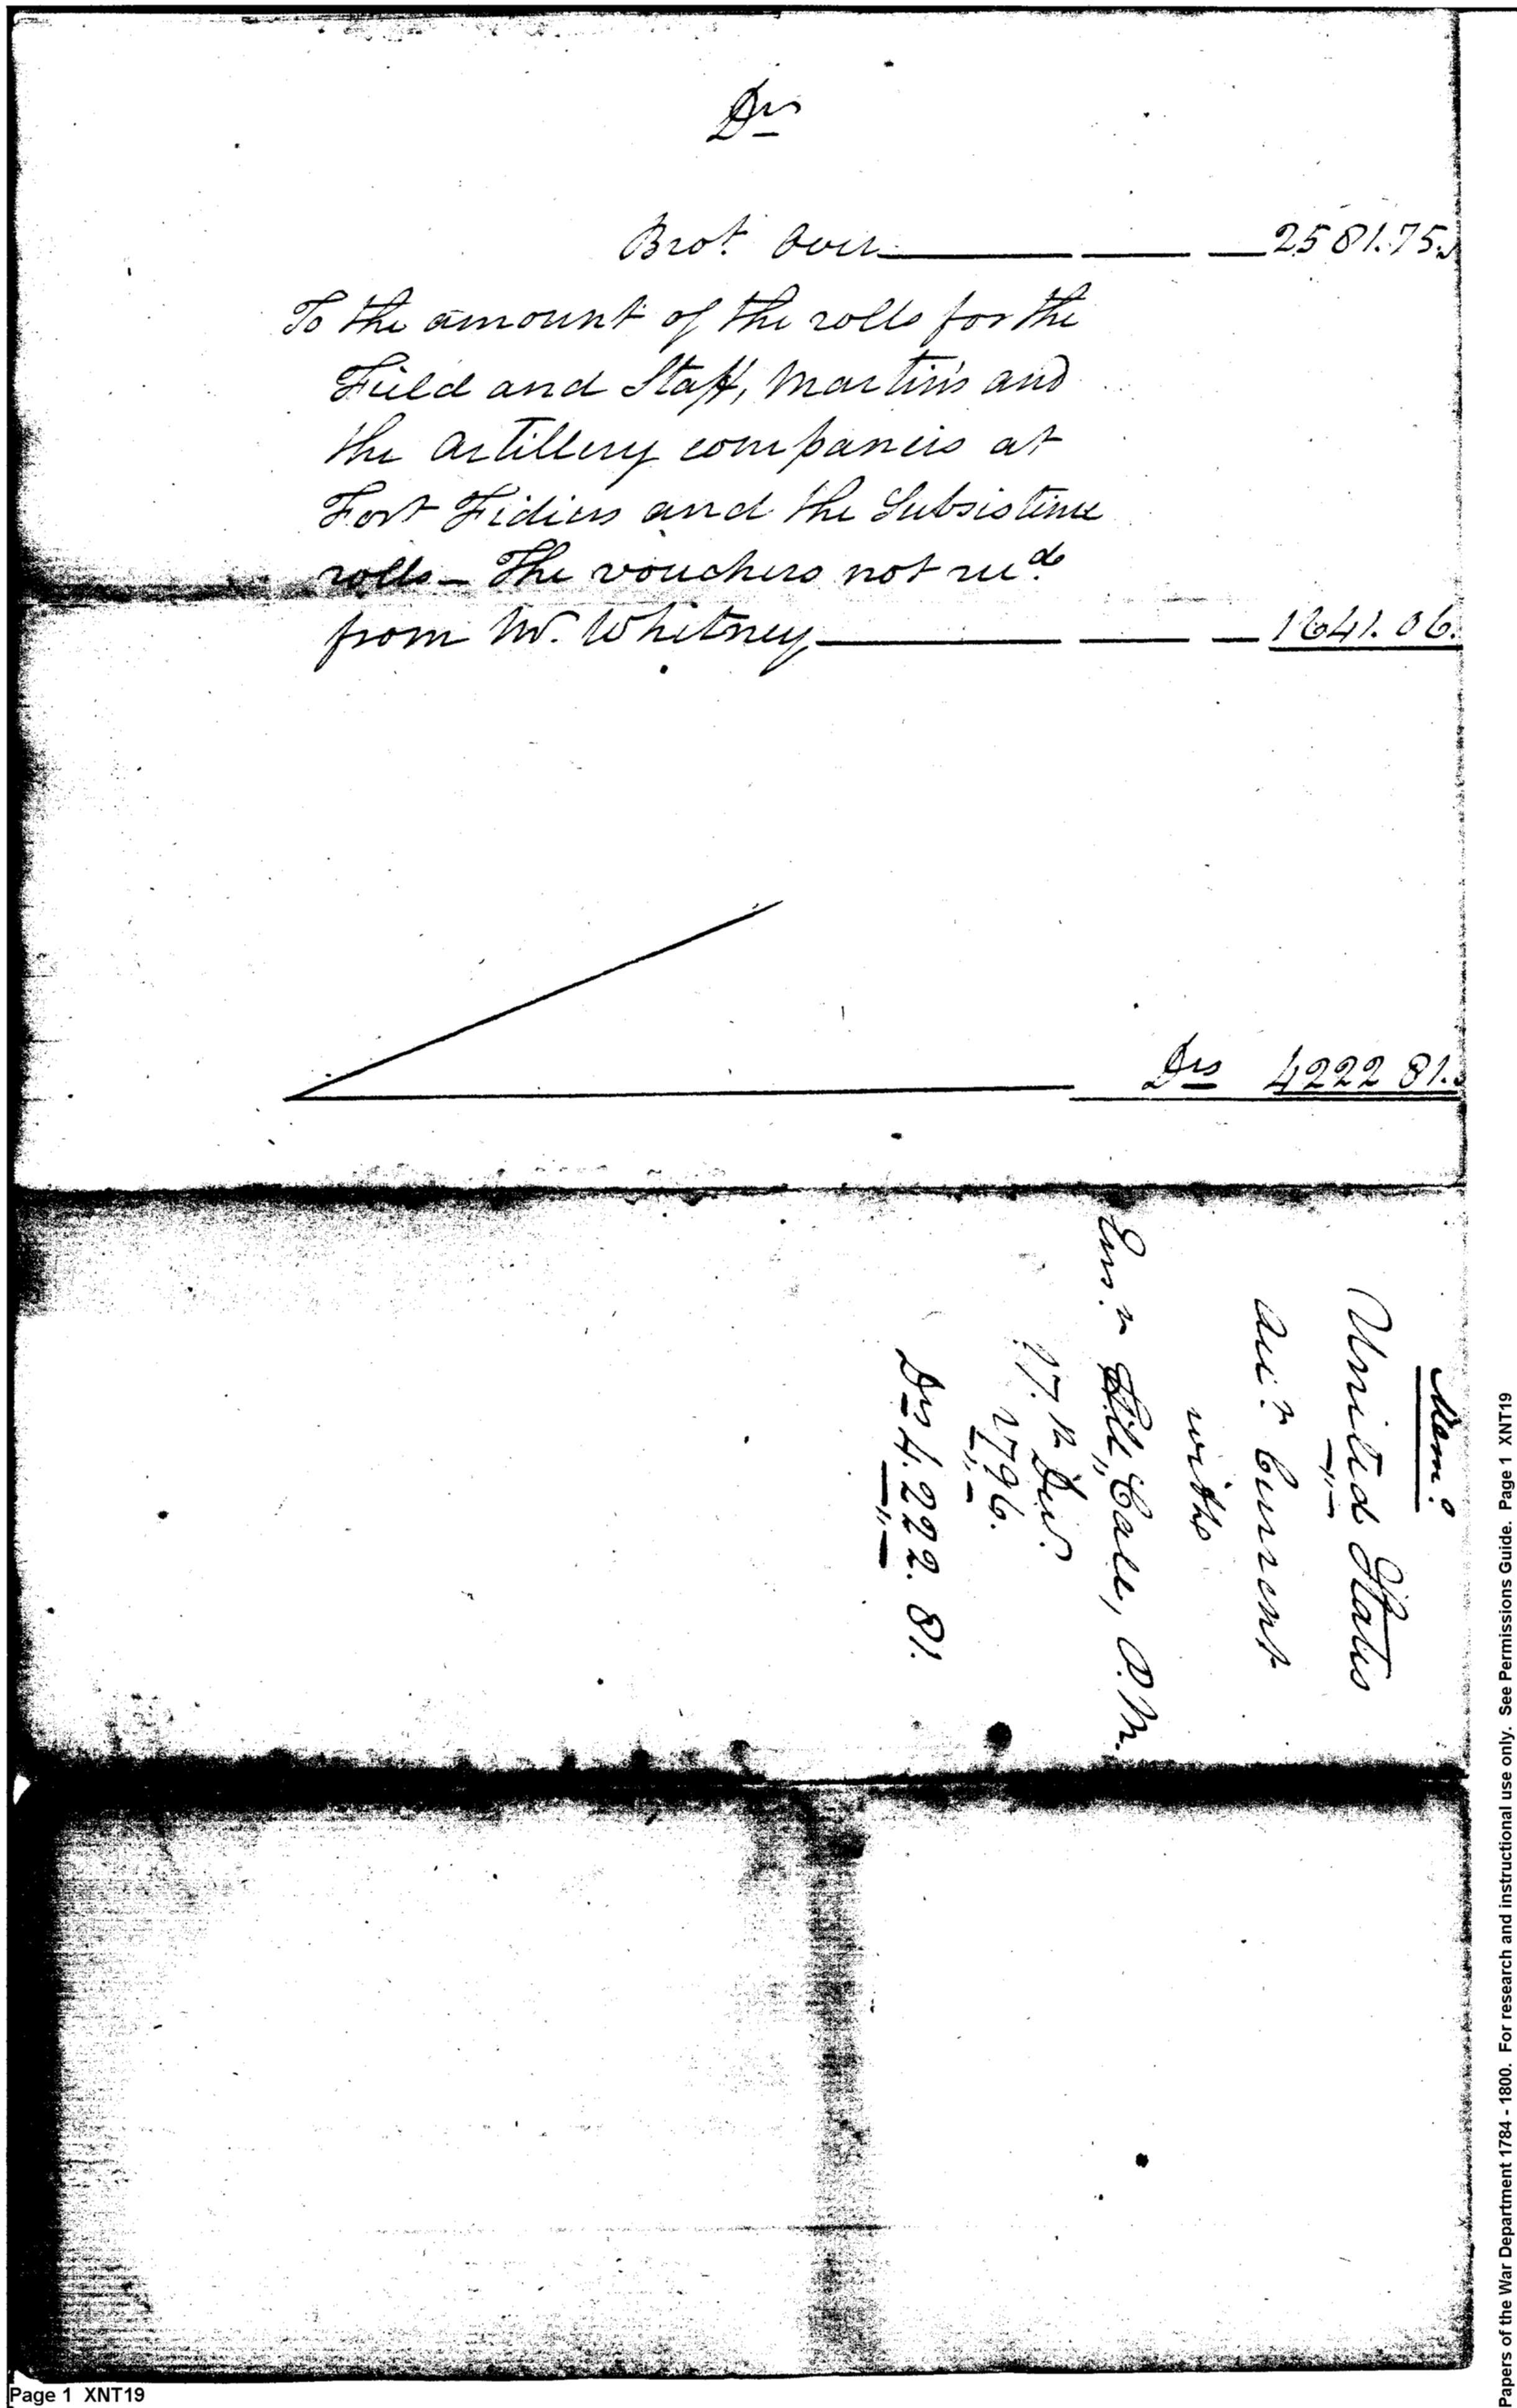 Drs
Brot. Over 2581.75.
To the amount of the rolls for the
Field and Staff, Martin's and
the Artillery companies at
Fort Fidius and the Subsistence
rolls — The vouchers not recd.
from Mr. Whitney 1641.06.
Drs 4222 81.
Memo.
United States
Acct. Current
with
Ensn. Cale, P.M.
1796.
Drs 4.222.81.
Page 1 XNT19
Papers of the War Department 1784 - 1800. For research and instructional use only. See Permissions Guide. Page 1 XNT19